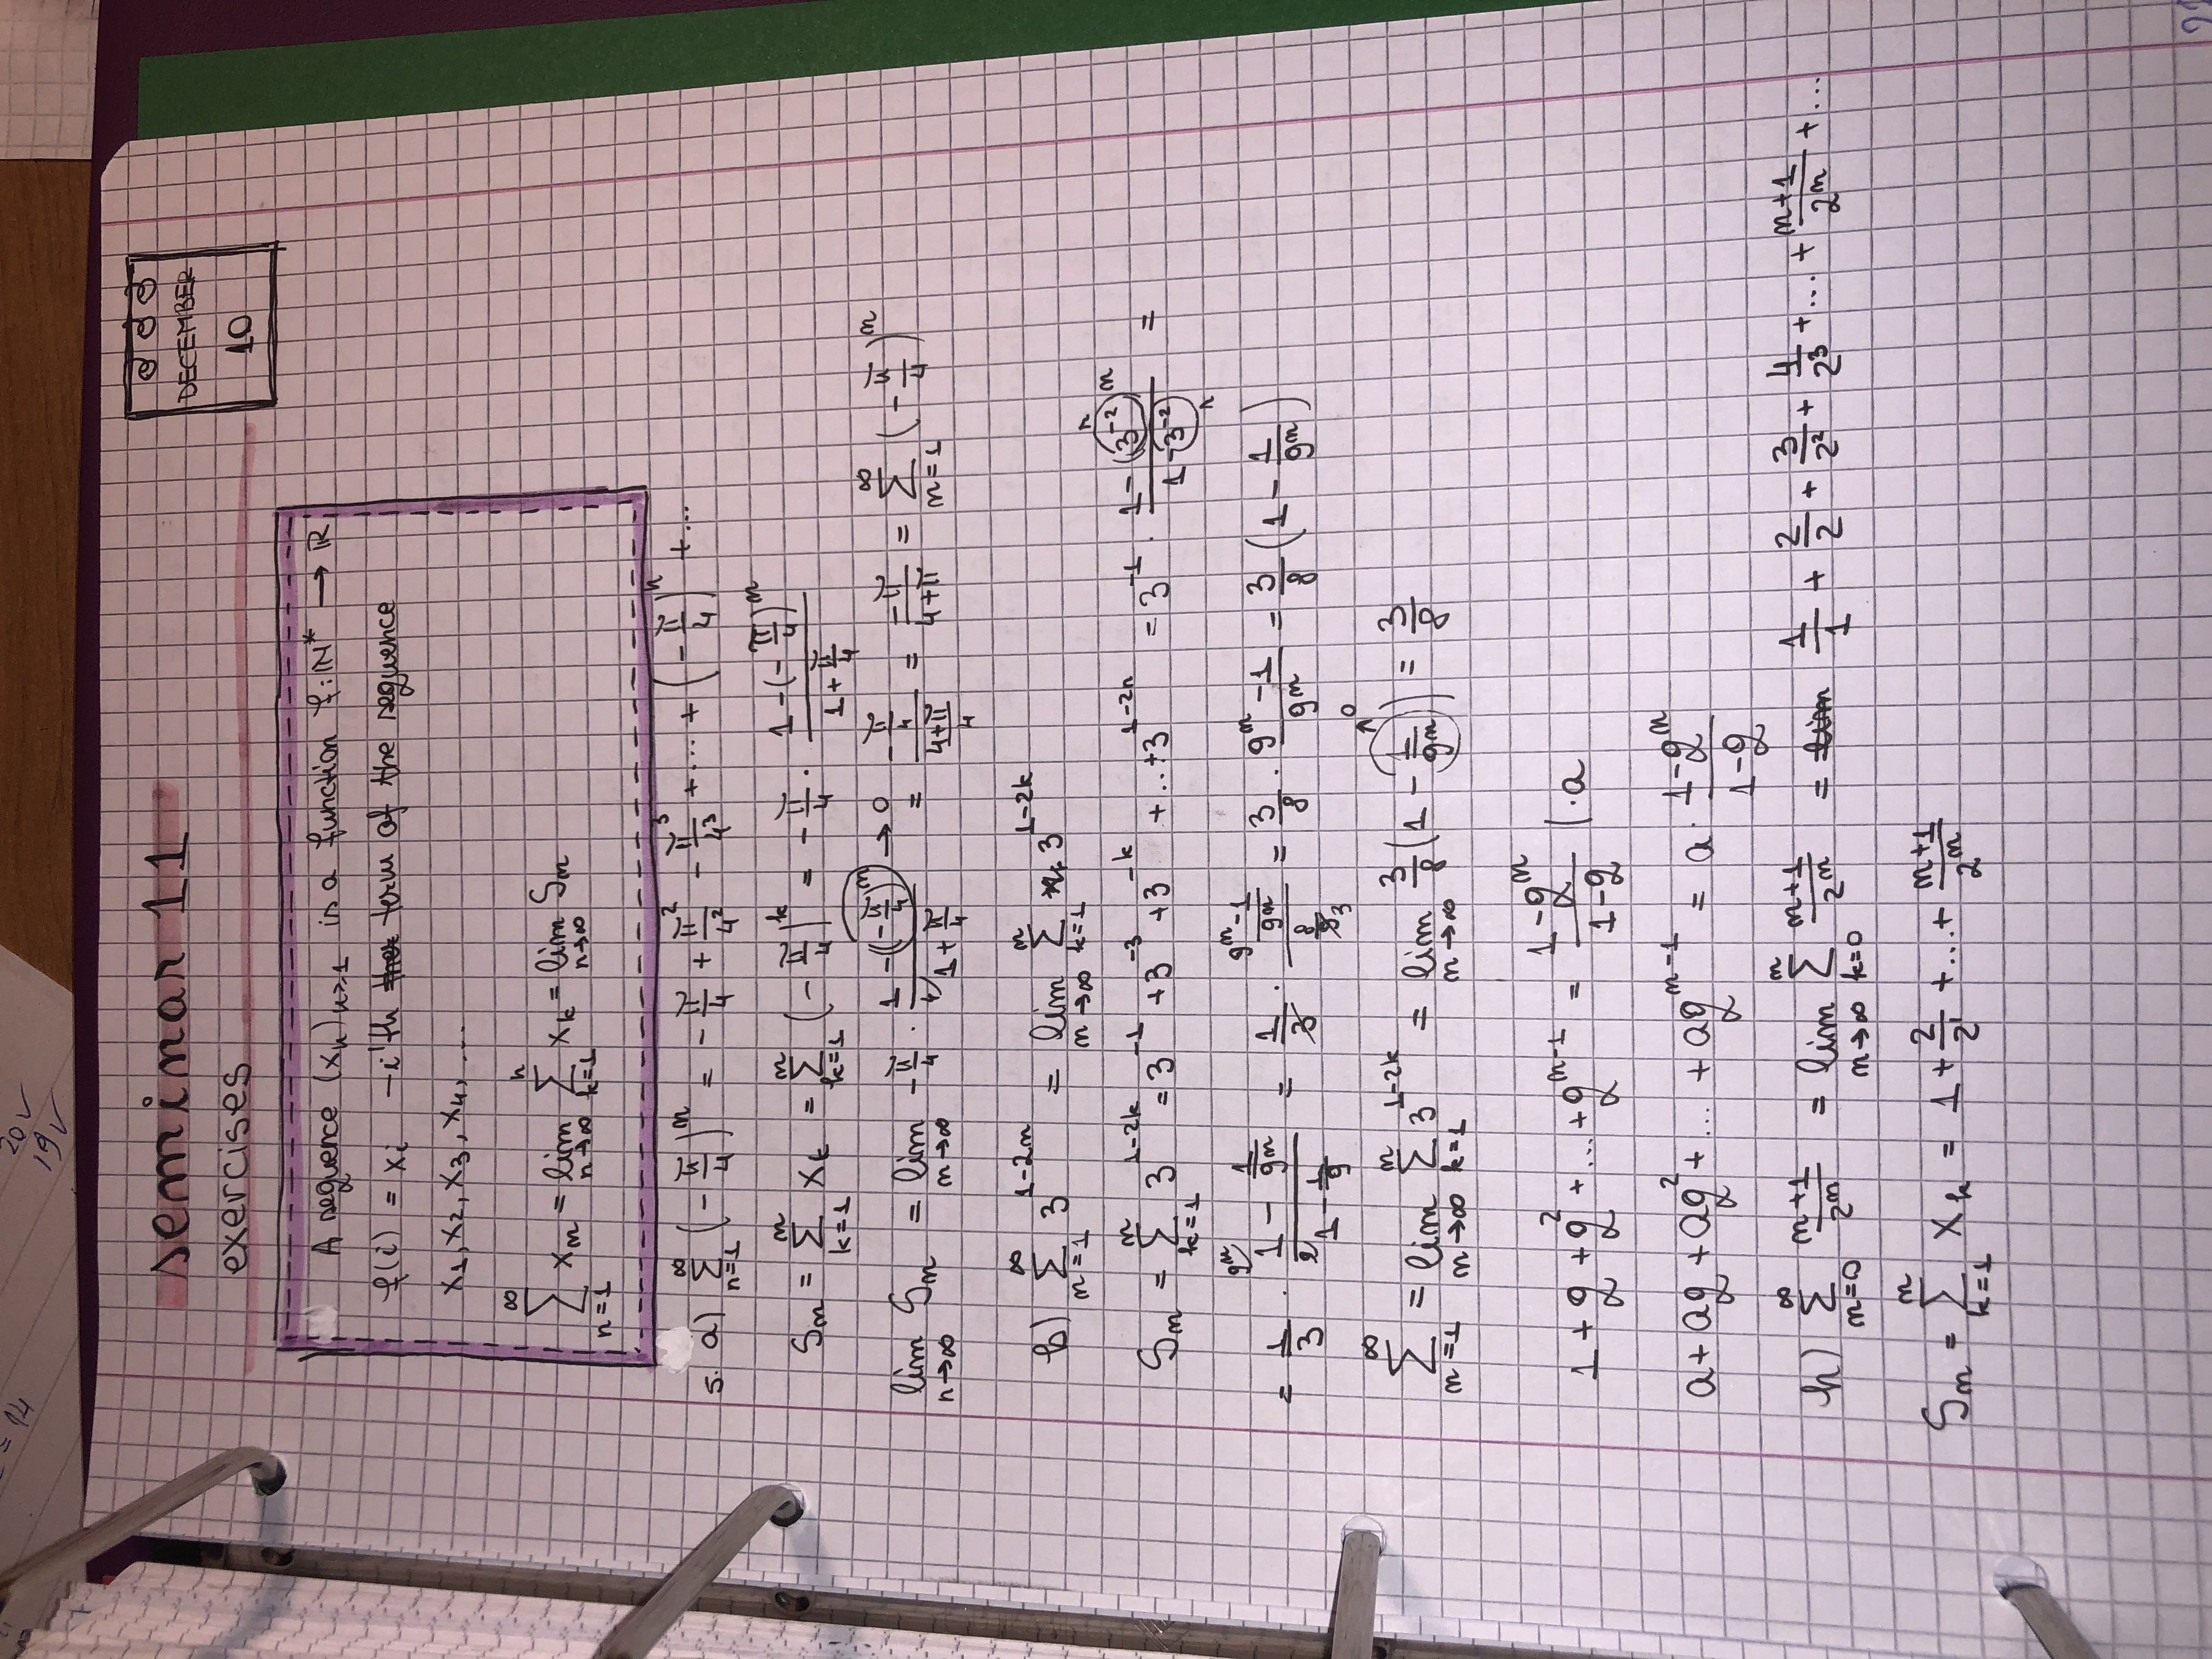 = 14
20 ✓
19 ✓
seminar 11
exercises
DECEMBER
10
A sequence (x_n)_{n≥1} is a function f: ℕ* → ℝ
f(i) = x_i - i'th term of the sequence
x_1, x_2, x_3, x_4, ...
∑_{n=1}^{∞} x_n = lim_{n→∞} ∑_{k=1}^{n} x_k = lim_{n→∞} S_n
5. a) ∑_{n=1}^{∞} (-π/4)^n = -π/4 + π^2/4^2 - π^3/4^3 + ... + (-π/4)^n + ...
S_n = ∑_{k=1}^{n} x_k = ∑_{k=1}^{n} (-π/4)^k = -π/4 · (1-(-π/4)^n)/(1+π/4)
lim_{n→∞} S_n = lim_{n→∞} -π/4 · (1-((-π/4)^n → 0))/(1+π/4) = (-π/4)/((4+π)/4) = -π/(4+π) = ∑_{n=1}^{∞} (-π/4)^n
b) ∑_{n=1}^{∞} 3^{1-2n} = lim_{n→∞} ∑_{k=1}^{n} 3^{1-2k}
S_n = ∑_{k=1}^{n} 3^{1-2k} = 3^{-1} + 3^{-3} + 3^{-k} + ... + 3^{1-2n} = 3^{-1} · (1-(3^{-2})^n)/(1-3^{-2}) =
= 1/3 · (1 - 1/9^n)/(1 - 1/9) = 1/3 · ((9^n-1)/9^n)/(8/9) = 3/8 · (9^n-1)/9^n = 3/8 (1 - 1/9^n)
∑_{n=1}^{∞} = lim_{n→∞} ∑_{k=1}^{n} 3^{1-2k} = lim_{n→∞} 3/8 (1 - 1/9^n → 0) = 3/8
1 + q + q^2 + ... + q^{n-1} = (1-q^n)/(1-q) | · a
a + aq + aq^2 + ... + aq^{n-1} = a · (1-q^n)/(1-q)
h) ∑_{n=0}^{∞} (n+1)/2^n = lim_{n→∞} ∑_{k=0}^{n} (n+1)/2^n = 1/1 + 2/2 + 3/2^2 + 4/2^3 + ... + (n+1)/2^n + ...
S_n = ∑_{k=1}^{n} x_k = 1 + 2/2^1 + ... + (n+1)/2^n